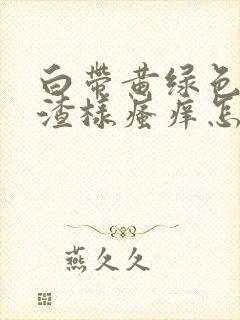 白带黄绿色
渣样瘙痒怎
燕久久